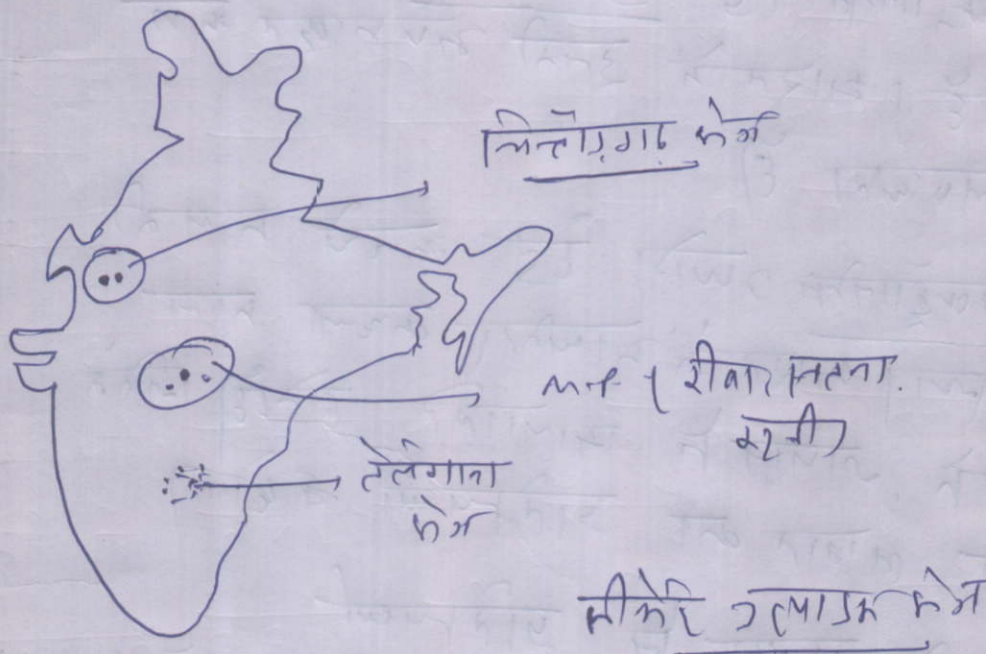 चित्तौड़गढ़ क्षेत्र
M.P. ( रीवा, सतना,
कटनी)
तेलंगाना
क्षेत्र
सीमेंट उत्पादक क्षेत्र